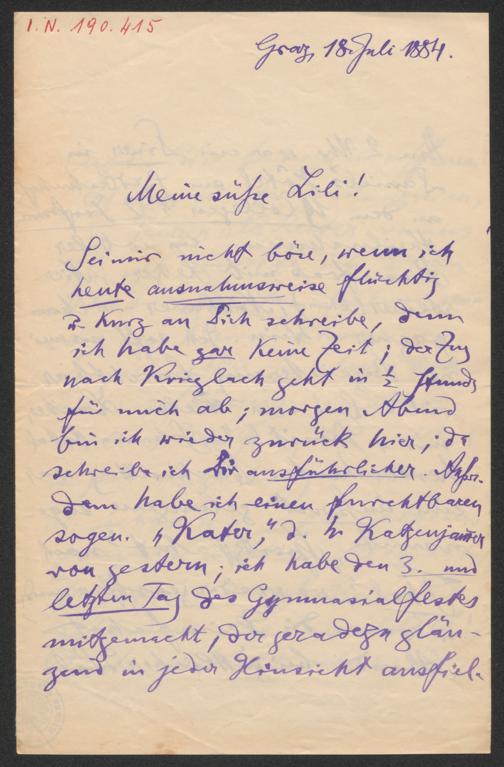 I.N. 190.415
Graz, 18. Juli 1884.
Meine süße Lili!
Sei mir nicht böse, wenn ich
heute ausnahmsweise flüchtig
u. kurz an Dich schreibe, denn
ich habe gar keine Zeit; der Zug
nach Krieglach geht in ½ Stunde
für mich ab; morgen Abend
bin ich wieder zurück hier; da
schreibe ich Dir ausführlicher. Außer-
dem habe ich einen furchtbaren
sogen. „Kater," d. h. Katzenjammer
von gestern; ich habe den 3. und
letzten Tag des Gymnasialfestes
mitgemacht, der geradezu glän-
zend in jeder Hinsicht ausfiel.